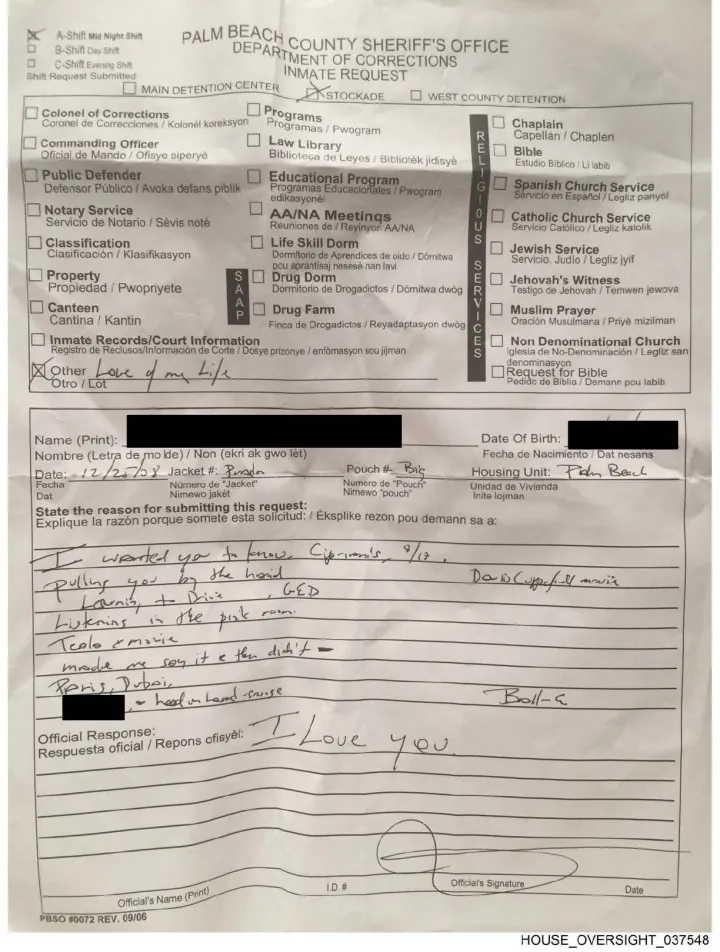 A-Shift Mid Night Shift
B-Shift Day Shift
C-Shift Evening Shift
Shift Request Submitted
PALM BEACH COUNTY SHERIFF'S OFFICE
DEPARTMENT OF CORRECTIONS
INMATE REQUEST
MAIN DETENTION CENTER STOCKADE WEST COUNTY DETENTION
Colonel of Corrections
Coronel de Correcciones / Kolonèl koreksyon
Commanding Officer
Oficial de Mando / Ofisye siperyè
Public Defender
Defensor Público / Avoka defans piblik
Notary Service
Servicio de Notario / Sèvis notè
Classification
Clasificación / Klasifikasyon
Property
Propiedad / Pwopriyete
Canteen
Cantina / Kantin
Inmate Records/Court Information
Registro de Reclusos/Información de Corte / Dosye prizonye / enfòmasyon sou jijman
Other Love of my Life
Otro / Lòt
Programs
Programas / Pwogram
Law Library
Biblioteca de Leyes / Bibliotèk jidisyè
Educational Program
Programas Educacionales / Pwogram
edikasyonèl
AA/NA Meetings
Reuniones de / Reyinyon AA/NA
SAAP
Life Skill Dorm
Dormitorio de Aprendices de oido / Dòmitwa
pou aprantisaj nesesè nan lavi
Drug Dorm
Dormitorio de Drogadictos / Dòmitwa dwòg
Drug Farm
Finca de Drogadictos / Reyadaptasyon dwòg
RELIGIOUS SERVICES
Chaplain
Capellán / Chaplen
Bible
Estudio Bíblico / Li labib
Spanish Church Service
Servicio en Español / Legliz panyòl
Catholic Church Service
Servicio Católico / Legliz katolik
Jewish Service
Servicio, Judío / Legliz jyif
Jehovah's Witness
Testigo de Jehovah / Temwen jewova
Muslim Prayer
Oración Musulmana / Priyè mizilman
Non Denominational Church
Iglesia de No-Denominación / Legliz san
denominasyon
Request for Bible
Pedido de Bíblia / Demann pou labib
Name (Print): Date Of Birth:
Nombre (Letra de molde) / Non (ekri ak gwo lèt) Fecha de Nacimiento / Dat nesans
Date: 12/25/08 Jacket #: Pouch #: Big Housing Unit: Palm Beach
Fecha Número de "Jacket" Numero de "Pouch" Unidad de Vivienda
Dat Nimewo jakèt Nimewo "pouch" Inite lojman
State the reason for submitting this request:
Explique la razón porque somete esta solicitud: / Èksplike rezon pou demann sa a:
I wanted you to know, Cipriani's, 9/17,
pulling you by the hand David Copperfield movie
Learning to Drive, GED
Listening in the pink room
movie
made me say it & then didn't -
Paris, Dubai,
- head on hand
Official Response: I Love you
Respuesta oficial / Repons ofisyèl:
Official's Name (Print) I.D. # Official's Signature Date
PBSO #0072 REV. 09/06
HOUSE_OVERSIGHT_037548